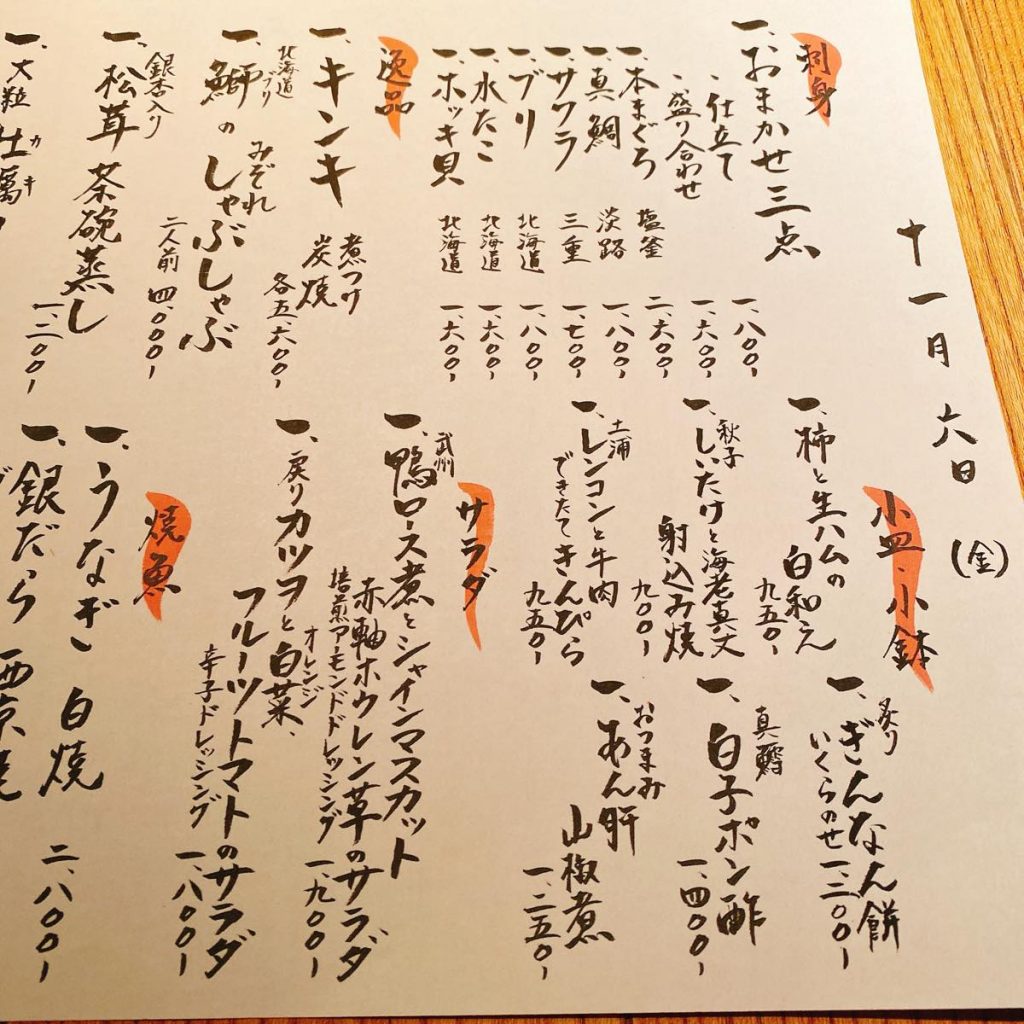 十一月六日(金)
刺身
一、おまかせ三点
・仕立て 一、八〇〇-
・盛り合わせ 一、六〇〇-
一、本まぐろ 塩釜 二、六〇〇-
一、真鯛 淡路 一、八〇〇-
一、サワラ 三重 一、七〇〇-
一、ブリ 北海道 一、八〇〇-
一、水たこ 北海道 一、六〇〇-
一、ホッキ貝 北海道 一、六〇〇-
逸品
一、キンキ 煮つけ
炭焼
北海道 各五、六〇〇-
一、鰤のしゃぶしゃぶ
ブリ みぞれ
二人前 四、〇〇〇-
銀杏入り
一、松茸茶碗蒸し
一、二〇〇-
一、大粒牡蠣
カキ
小皿・小鉢
一、柿と生ハムの
白和え
九五〇-
秋子
一、しいたけと海老真丈
射込み焼
九〇〇-
土浦
一、レンコンと牛肉
できたてきんぴら
九五〇-
炙り
一、ぎんなん餅
いくらのせ
一、三〇〇-
真鱈
一、白子ポン酢
一、四〇〇-
おつまみ
一、あん肝
山椒煮
一、二五〇-
サラダ
武州
一、鴨ロース煮とシャインマスカット
赤軸ホウレン草のサラダ
焙煎アーモンドドレッシング
オレンジ
一、九〇〇-
一、戻りカツヲと白菜、
フルーツトマトのサラダ
辛子ドレッシング
一、八〇〇-
焼魚
一、うなぎ 白焼
二、八〇〇-
一、銀だら 西京焼